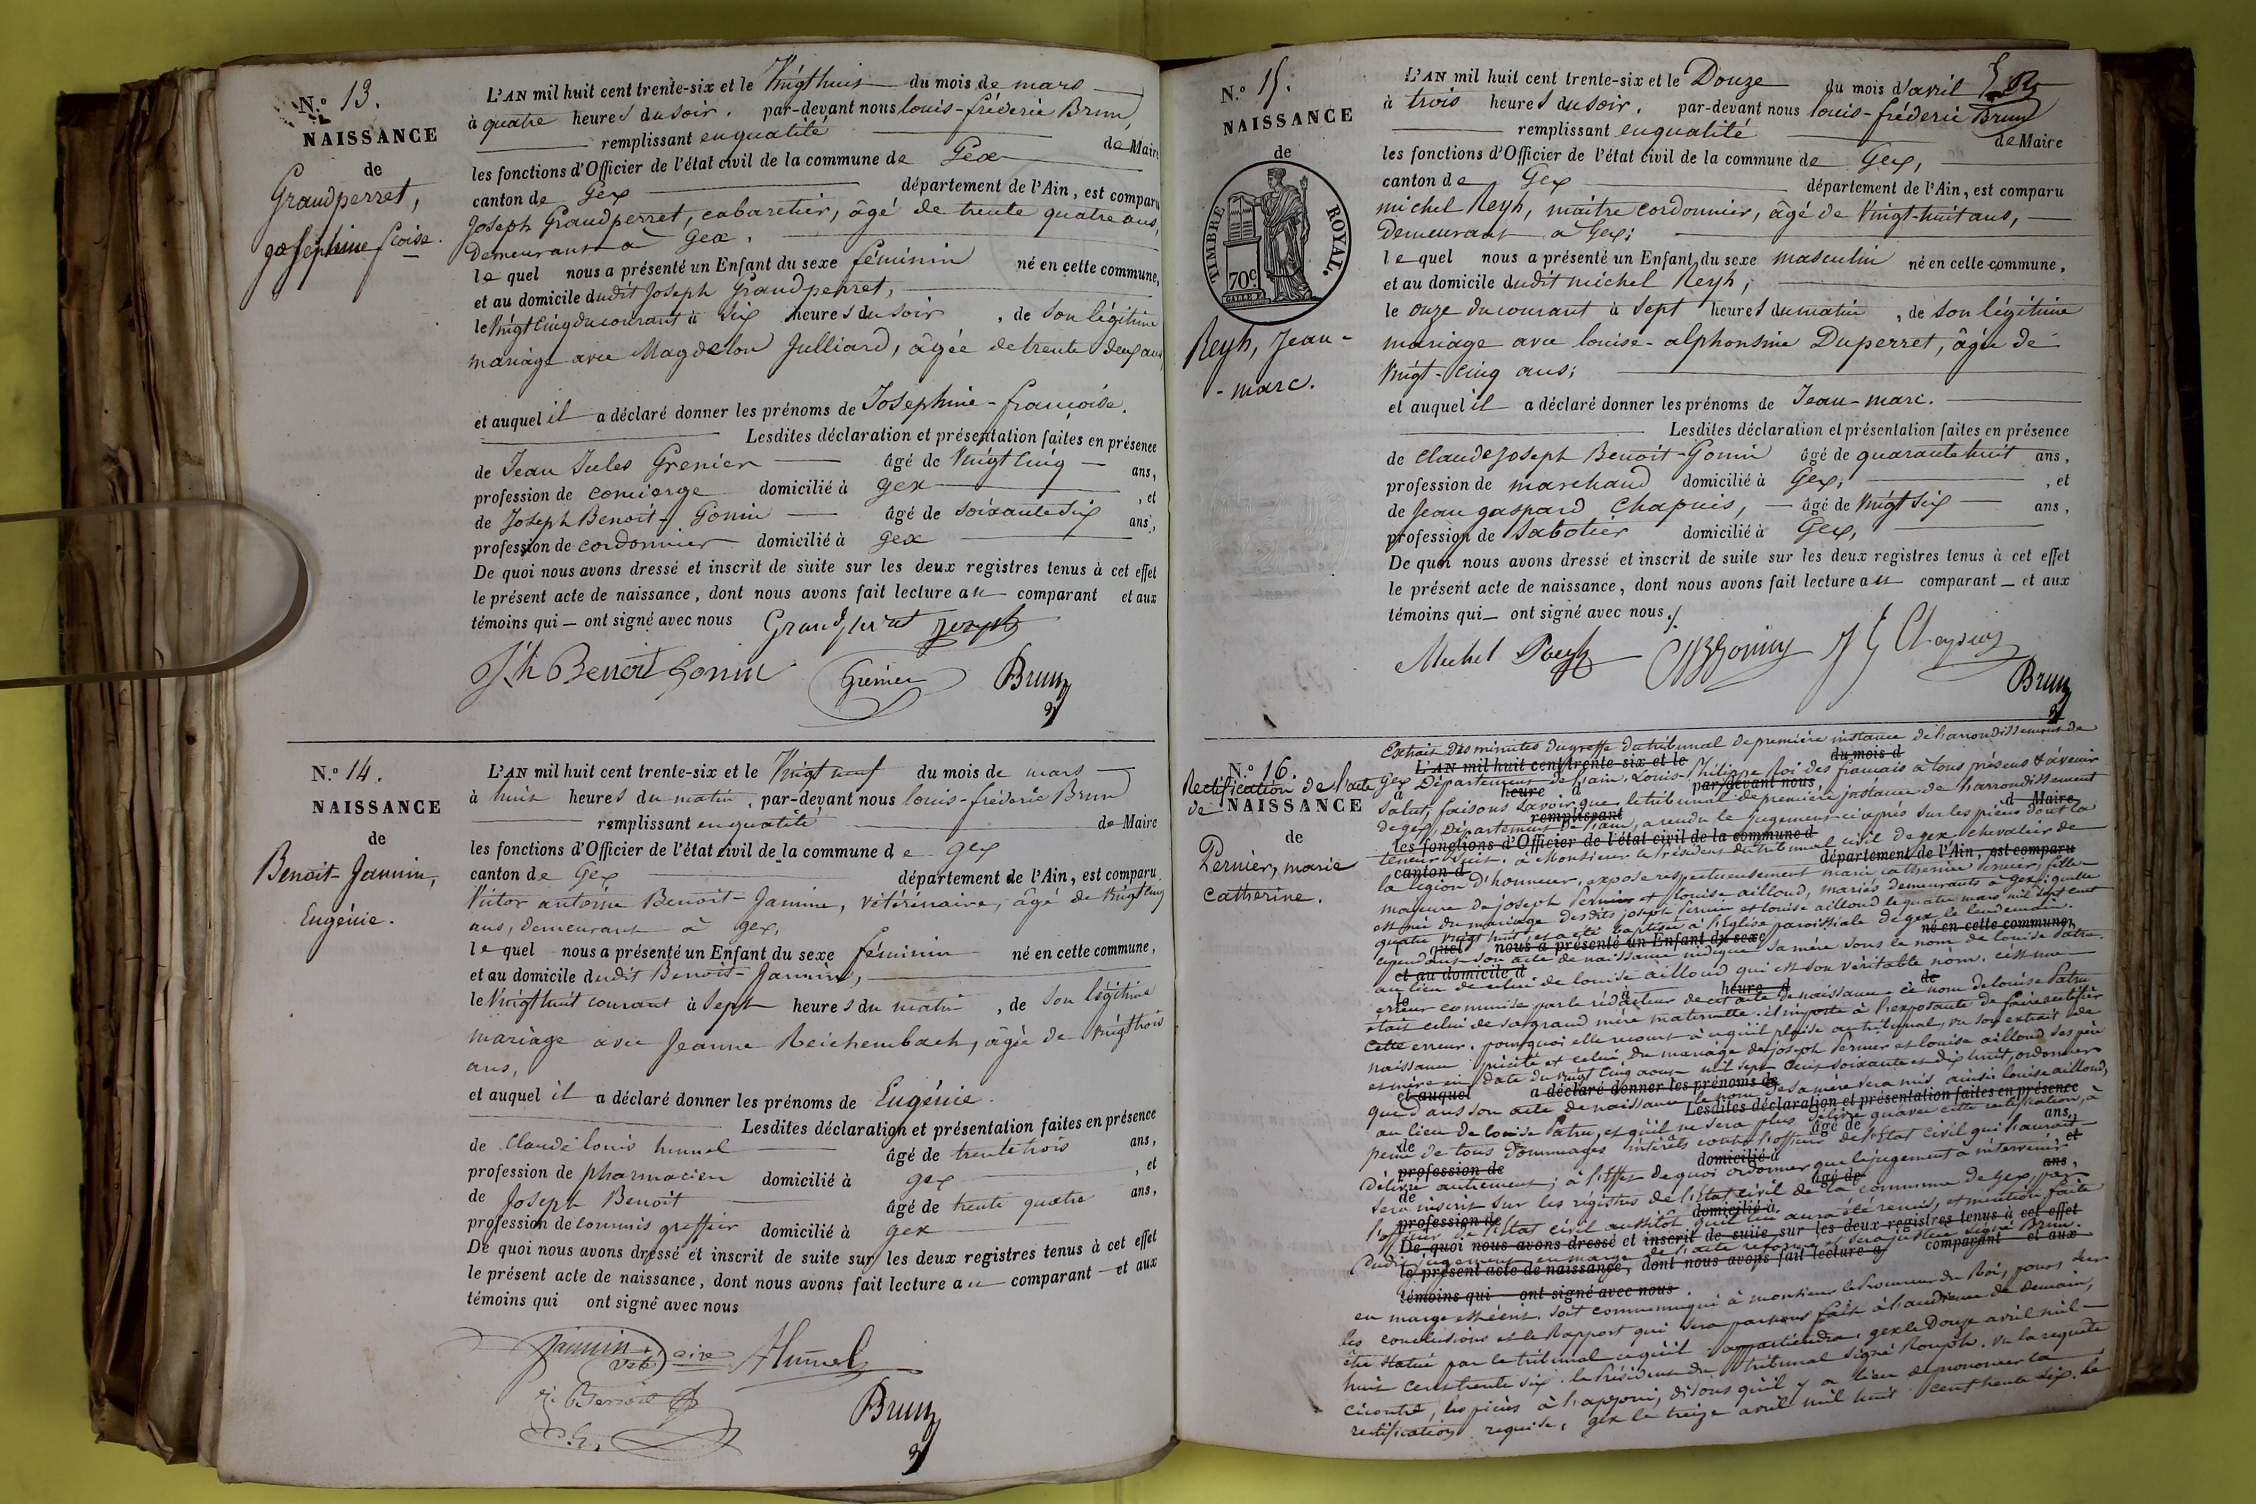 N.° 13.
NAISSANCE
de
Grandperret,
Joséphine fcoise.
L'AN mil huit cent trente-six et le Vingt huit du mois de mars
à quatre heures du soir, par-devant nous louis-fréderic Brun,
remplissant en qualité de Maire
les fonctions d'Officier de l'état civil de la commune de Gex
canton de Gex département de l'Ain, est comparu
Joseph Grandperret, cabaretier, âgé de trente quatre ans,
Demeurant à Gex.
le quel nous a présenté un Enfant du sexe féminin né en cette commune,
et au domicile dudit Joseph Grandperret,
le Vingt cinq du courant à six heures du soir, de son légitime
mariage avec Magdelon Julliard, âgée de trente deux ans
et auquel il a déclaré donner les prénoms de Joséphine-françoise.
Lesdites déclaration et présentation faites en présence
de Jean Jules Grenier âgé de Vingt cinq ans,
profession de concierge domicilié à gex, et
de Joseph Benoit-Gonin âgé de soixante six ans,
profession de cordonnier domicilié à gex
De quoi nous avons dressé et inscrit de suite sur les deux registres tenus à cet effet
le présent acte de naissance, dont nous avons fait lecture au comparant et aux
témoins qui ont signé avec nous Grandperret Joseph
Jh Benoit Gonin Grenier Brun
N.° 14.
NAISSANCE
de
Benoit-Jannin,
Eugénie.
L'AN mil huit cent trente-six et le Vingt neuf du mois de mars
à huit heures du matin, par-devant nous louis-fréderic Brun
remplissant en qualité de Maire
les fonctions d'Officier de l'état civil de la commune de gex
canton de Gex département de l'Ain, est comparu
Victor antoine Benoit-Jannin, vétérinaire, âgé de Vingt cinq
ans, demeurant à gex,
le quel nous a présenté un Enfant du sexe féminin né en cette commune,
et au domicile dudit Benoit-Jannin,
le Vingt huit courant à sept heures du matin, de son légitime
mariage avec Jeanne Reichembach, âgée de Vingt trois
ans,
et auquel il a déclaré donner les prénoms de Eugénie.
Lesdites déclaration et présentation faites en présence
de Claude louis hunnel âgé de trente trois ans,
profession de pharmacien domicilié à gex, et
de Joseph Benoit âgé de trente quatre ans,
profession de commis greffier domicilié à gex
De quoi nous avons dressé et inscrit de suite sur les deux registres tenus à cet effet
le présent acte de naissance, dont nous avons fait lecture au comparant et aux
témoins qui ont signé avec nous
Jannin Vété aire Hunnel
J. Benoit
Brun
N.° 15.
NAISSANCE
de
TIMBRE ROYAL.
70c
Reyh, Jean-
-marc.
L'AN mil huit cent trente-six et le Douze du mois d'avril
à trois heures du soir, par-devant nous louis-fréderic Brun
remplissant en qualité de Maire
les fonctions d'Officier de l'état civil de la commune de Gex,
canton de Gex département de l'Ain, est comparu
michel Reyh, maitre cordonnier, âgé de Vingt-huit ans,
Demeurant à Gex;
le quel nous a présenté un Enfant du sexe masculin né en cette commune,
et au domicile dudit michel Reyh,
le onze du courant à sept heures du matin, de son légitime
mariage avec louise-alphonsine Duperret, âgée de
Vingt-cinq ans;
et auquel il a déclaré donner les prénoms de Jean-marc.
Lesdites déclaration et présentation faites en présence
de claude joseph Benoit-Gonin âgé de quarante huit ans,
profession de marchand domicilié à Gex, et
de Jean gaspard Chapuis, âgé de Vingt six ans,
profession de Sabotier domicilié à Gex,
De quoi nous avons dressé et inscrit de suite sur les deux registres tenus à cet effet
le présent acte de naissance, dont nous avons fait lecture au comparant et aux
témoins qui ont signé avec nous
Michel Reyh
Brun
N.° 16.
Rectification de l'acte
de NAISSANCE
de
Pernier, marie
catherine.
Extrait des minutes du greffe du tribunal de première instance de l'arrondissement de
gex Département de l'ain. Louis-Philippe Roi des français à tous présens & avenir
salut, faisons savoir que le tribunal de première instance de l'arrondissement
de gex, Département de l'ain, a rendu le jugement ci-après sur les pièces dont la
teneur suit. à Monsieur le Président du tribunal civil de gex chevalier de
la légion d'honneur, expose respectueusement marie catherine Pernier, fille
majeure de joseph Pernier et louise ailloud, mariés demeurants à gex; quelle
est née du mariage desdits joseph Pernier et louise ailloud le quatre mars mil sept cent
quatre Vingt huit, et a été baptisée à l'Eglise paroissiale de gex, le lendemain.
cependant son acte de naissance indique sa mère sous le nom de louise Patru
au lieu de celui de louise ailloud qui est son véritable nom. c'est une
erreur commise par le rédacteur de cet acte de naissance. ce nom de louise Patru
était celui de sa grand mère maternelle. il importe à l'exposante de faire rectifier
cette erreur. pourquoi elle recourt à ce qu'il plaise au tribunal, vu son extrait de
naissance précité et celui du mariage de joseph Pernier et louise ailloud ses père
et mère en date du Vingt cinq aout mil sept cent soixante et dix huit, ordonner
que dans son acte de naissance le nom de sa mère sera mis ainsi louise ailloud,
au lieu de louise Patru, et qu'il ne sera plus délivré qu'avec cette rectification, à
peine de tous dommages intérêts contre l'officier de l'Etat civil qui l'aurait
Délivré autrement; à l'effet de quoi ordonner que le jugement à intervenir
sera inscrit sur les registres de l'Etat civil de la commune de Gex, par
l'officier de l'Etat civil aussitôt qu'il lui aura été remis, et mention faite
Dudit jugement en marge de l'acte réformé et sera justice signé Brun.
en marge est écrit, soit communiqué à monsieur le Procureur du Roi, pour sur
les conclusions et le Rapport qui sera par nous fait à l'audience de demain,
être statué par le tribunal ce qu'il appartiendra. gex le Douze avril mil
huit cent trente six. le Président du tribunal signé Rouph. Vu la requête
ci contre, les pièces à l'appui, disons qu'il y a lieu de prononcer la
rectification requise, gex le treize avril mil huit cent trente six. le